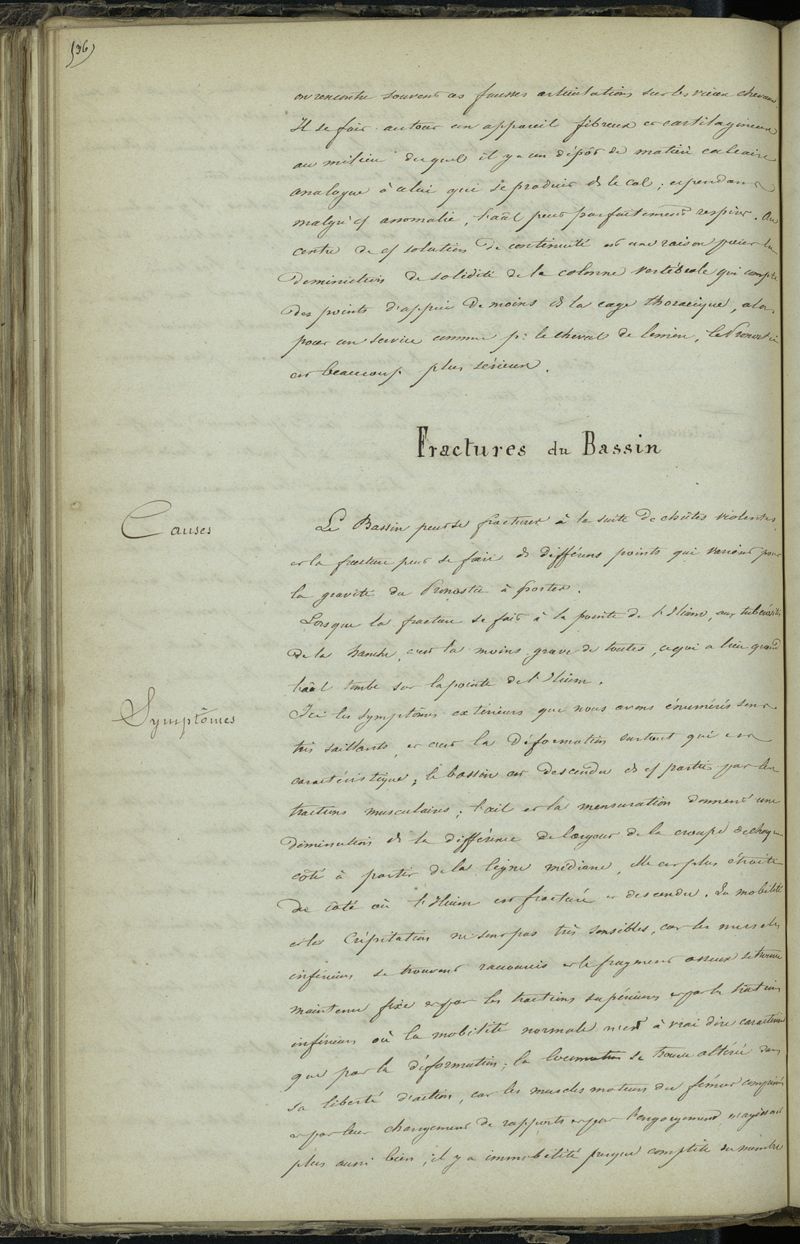 (36)
on rencontre souvent ces fausses articulations sur les vieux chevaux
Il se fait autour un appareil fibreux et cartilagineux
au milieu duquel il y a un dépôt de matière calcaire
analogue à celui qui se produit ds le cal ; cependant
malgré cf anomalie, l'aāl peut parfaitement respirer. Au
contre de cf solution de continuité est une raison pour la
diminution de solidité de la colonne vertébrale qui compte
des points d'appui de moins ds la cage thoracique, alors
pour un service comme p: le cheval de limon, le Pronostic
est beaucoup plus sérieux.
Fractures du Bassin
Causes
Le Bassin peut se fracturer à la suite de chûtes violentes,
et la fracture peut se faire ds différens points qui varient pour
la gravité du Pronostic à porter.
Lorsque la fracture se fait à la pointe de l'Ilium, aux tubérosités
de la hanche, c'est la moins grave de toutes, ce qui a lieu quand
l'aāl tombe sur la pointe de l'Ilium.
Symptômes
Ici les symptômes extérieurs que nous avons énumérés sont
très saillants, et c'est la déformation surtout qui est
caractéristique ; le bassin est descendu ds cf partie par les
tractions musculaires ; l'œil et la mensuration donnent une
diminution ds la différence de largeur de la croupe de chaque
côté à partir de la ligne médiane, elle est plus étroite
du coté où l'Ilium est fracturé et descendu. La mobilité
et la Crépitation ne sont pas très sensibles, car les muscles
inférieurs se trouvent raccourcis et le fragment osseux se trouve
maintenu fixe et par les tractions supérieures et par la traction
inférieure où la mobilité normale n'est à vrai dire caractérisée
que par la déformation ; la locomotion se trouve altérée dans
sa liberté d'action, car les muscles moteurs du fémur comprimés
et par leur changement de rapports et par l'engorgement n'agissent
plus aussi bien, il y a immobilité presque complète du membre